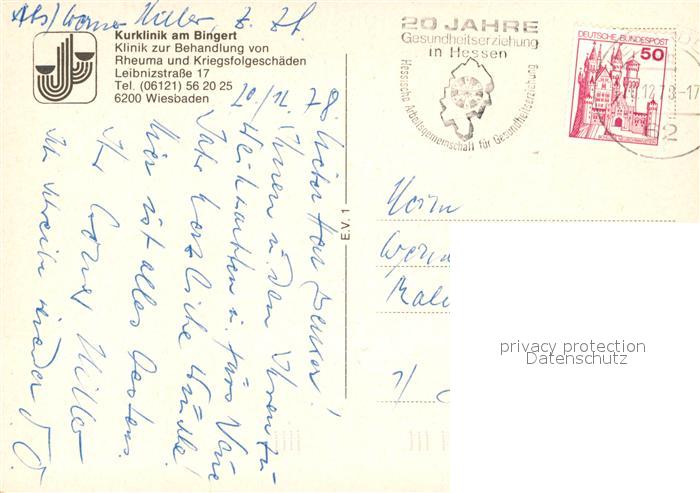 Abs/Werner Hiller, z. Zt.
Kurklinik am Bingert
Klinik zur Behandlung von
Rheuma und Kriegsfolgeschäden
Leibnizstraße 17
Tel. (06121) 56 20 25
6200 Wiesbaden
20 JAHRE
Gesundheitserziehung
in Hessen
Hessische Arbeitsgemeinschaft für Gesundheitserziehung
DEUTSCHE BUNDESPOST
50
12.78-17
62
20./12. 78.
Lieber Herr !
Ihnen u. den Ihren zu
Weihnachten u. fürs Neue
Jahr herzliche Wünsche!
Hier ist alles bestens.
Ihr Werner Hiller
Ich schreibe wieder
E.V. 1
Herrn
privacy protection
Datenschutz